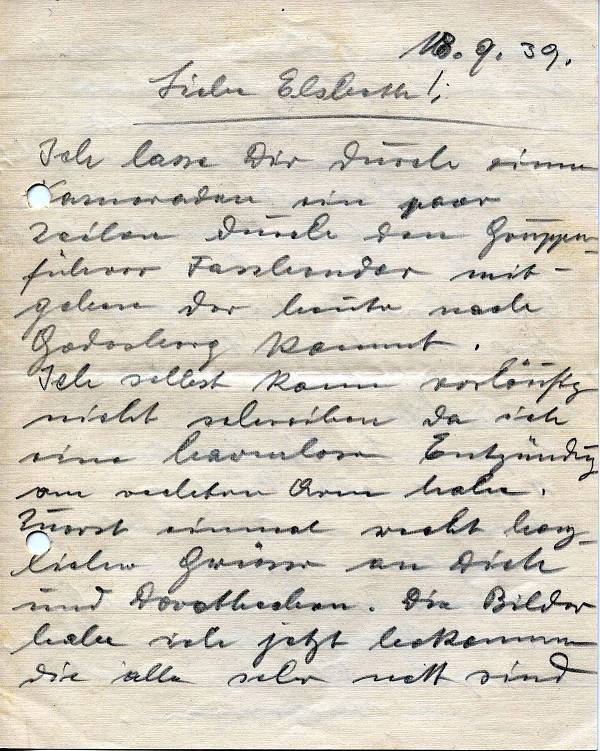 18.9.39.
Liebe Elsbeth!;
Ich lasse Dir durch einen
Kameraden ein paar
Zeilen durch den Gruppen-
führer Fassbender mit-
geben der heute nach
Godesberg kommt.
Ich selbst kann vorläufig
nicht schreiben da ich
eine harmlose Entzündg
am rechten Arm habe.
Zuerst einmal recht herz-
liche Grüsse an Dich
und Dorothechen. Die Bilder
habe ich jetzt bekommen
die alle sehr nett sind